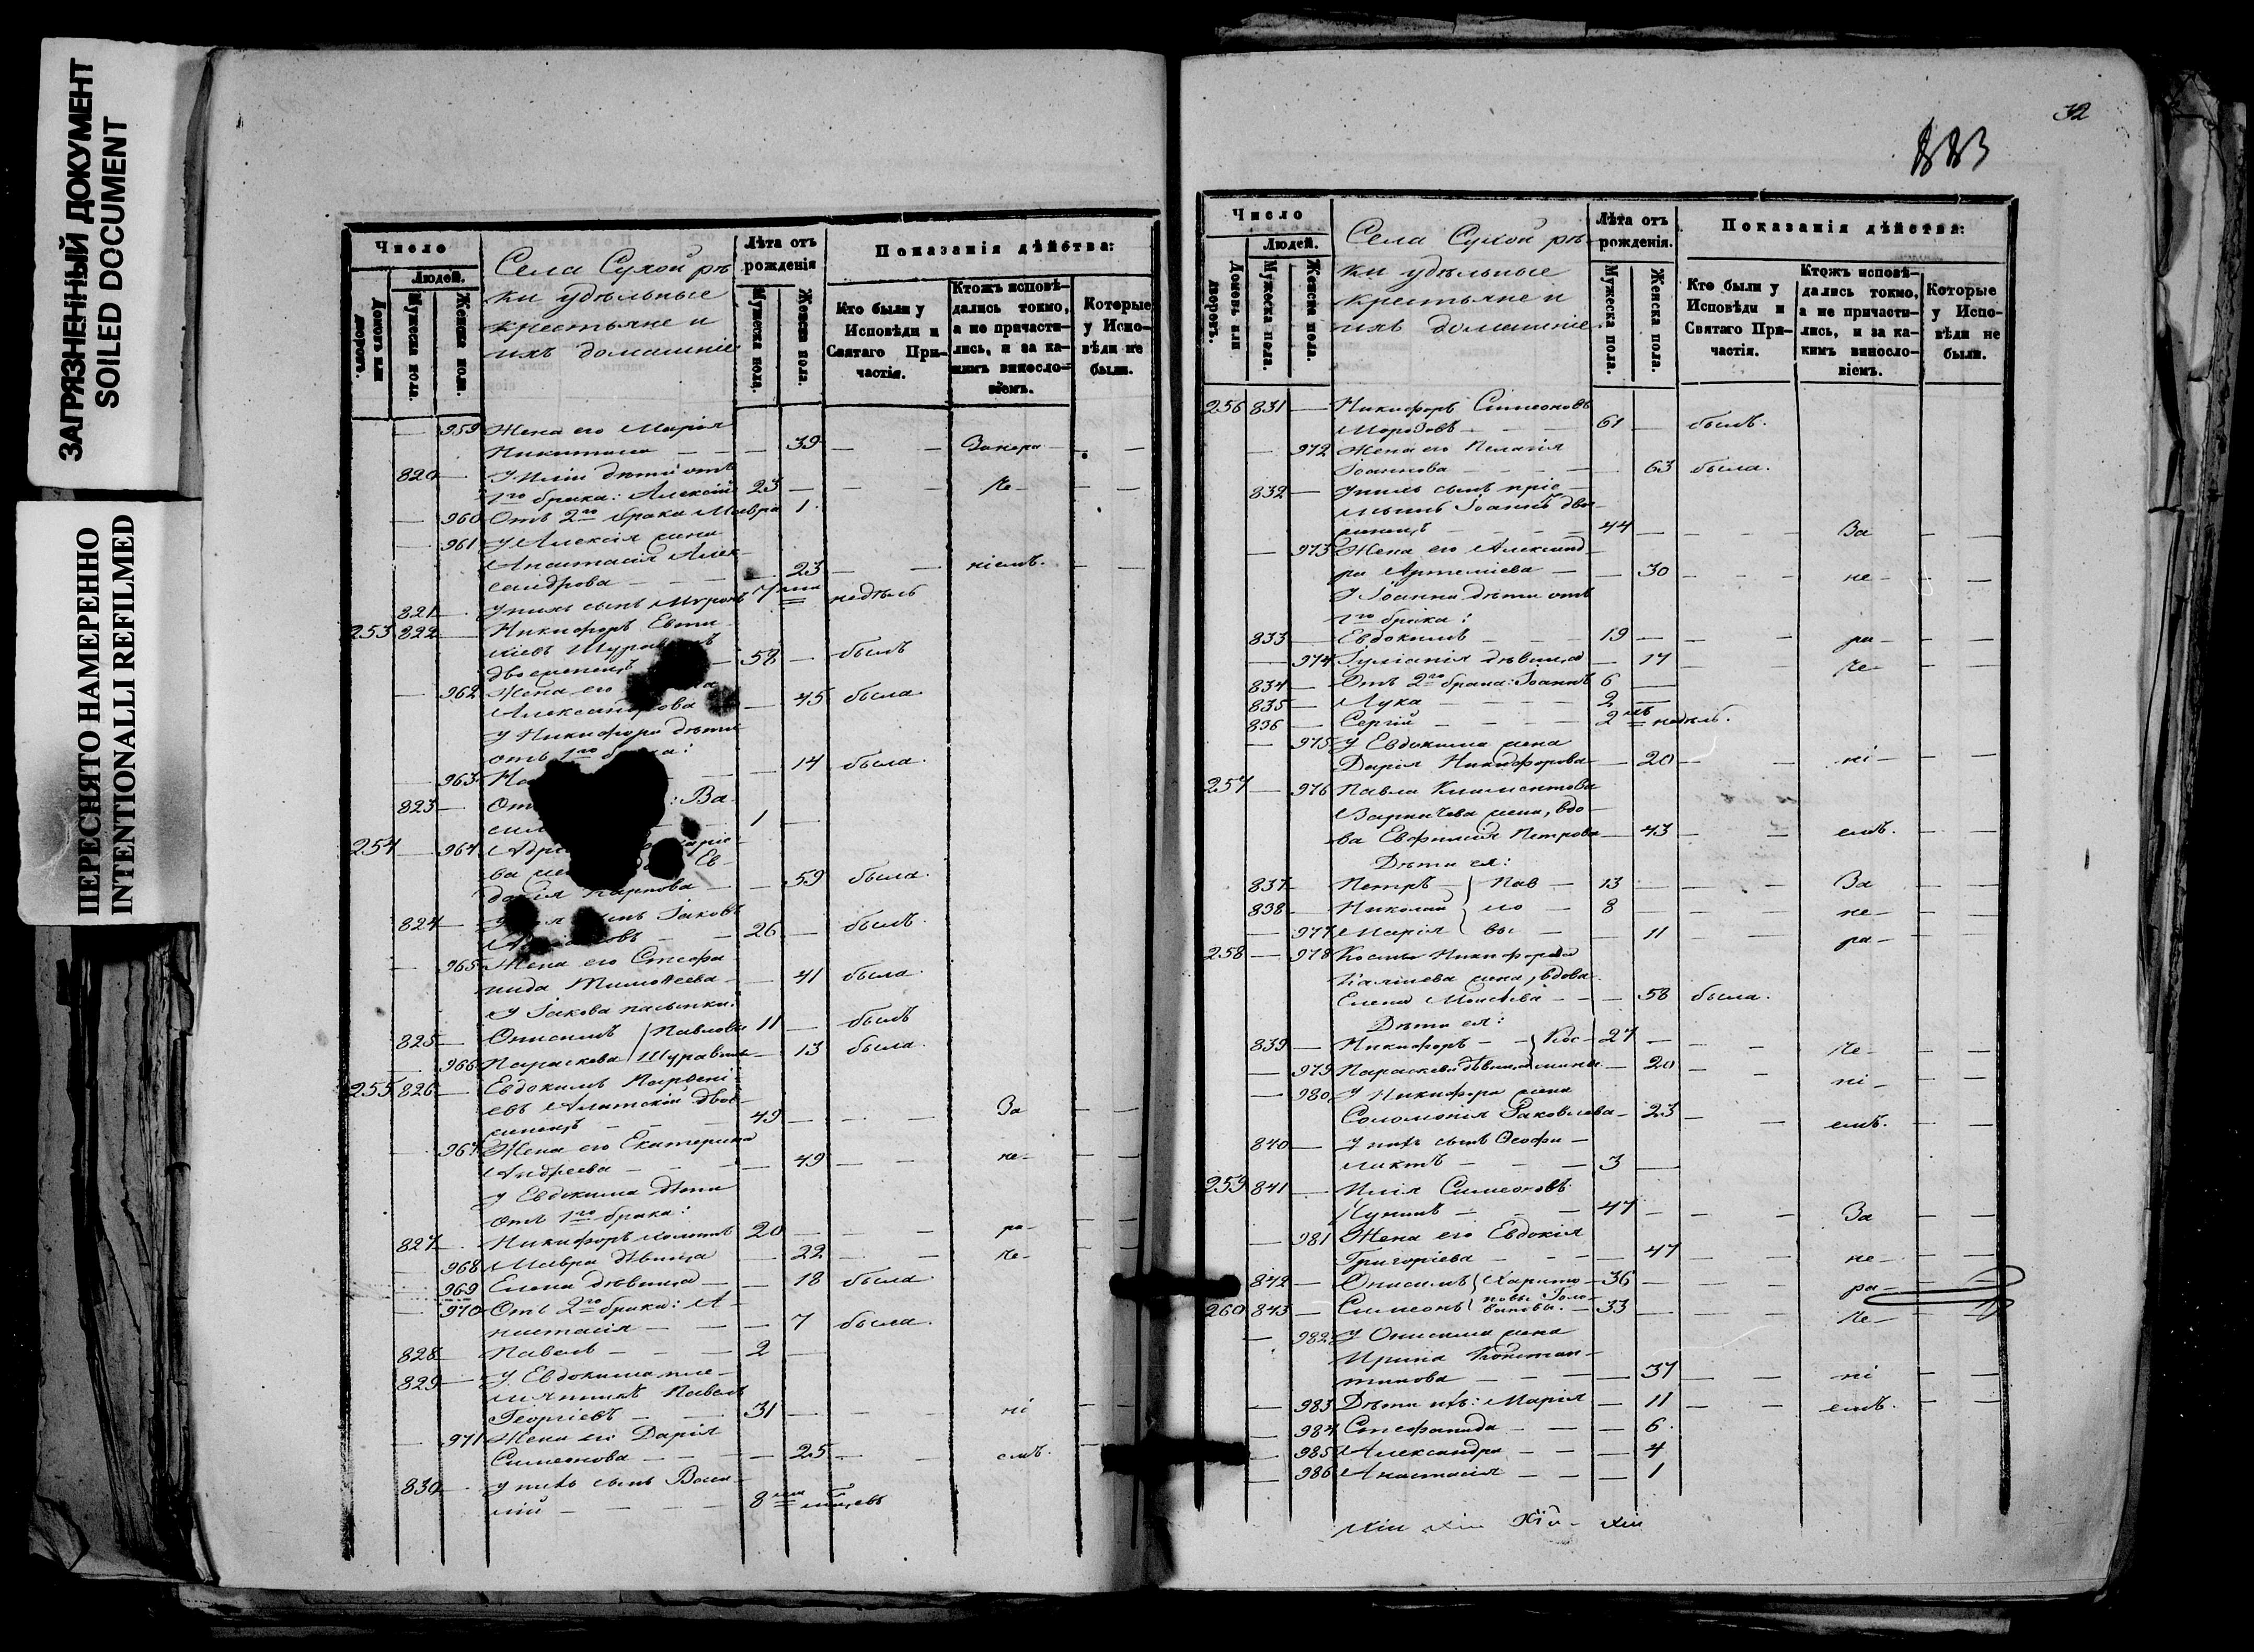 ЗАГРЯЗНЕННЫЙ ДОКУМЕНТ
SOILED DOCUMENT
ПЕРЕСНЯТО НАМЕРЕННО
INTENTIONALLI REFILMED
Число
Людей.
Домовъ или дворовъ.
Мужеска пола.
Женска пола.
Села Сухой рѣ
ки удѣльные
крестьяне и
ихъ домашніе
Лѣта отъ
рожденія
Мужеска пола.
Женска пола.
Показанія дѣйства:
Кто были у
Исповѣди и
Святаго При-
частія.
Ктожъ исповѣ-
дались токмо,
а не причасти-
лись, и за ка-
кимъ виносло-
віемъ.
Которые
у Испо-
вѣди не
были.
959 Жена его Марія
Никитина 39 Занера
820 У Иліи дѣти отъ
1го брака: Алексій 23 Че
960 Отъ 2го брака Мавра 1
961 У Алексія жена
Анастасія Алек
сандрова 23 ніемъ.
821 У нихъ сынъ 7ми недѣль
253 822 Никифоръ
двоеженецъ 58 былъ
962 Жена его
Александрова 45 была
У Никифора дѣти
отъ 1го брака:
963 14 была.
823 От : Ва
1
254 964
Ев
докія Карпова 59 была.
824 сынъ Іаковъ
26 былъ
965 Жена его Стефа
нида Тимоѳеева 41 была
У Іакова пасынки:
825 Онисимъ Павловы 11 былъ
966 Параскева 13 была.
255 826 Евдокимъ Парѳені
евъ двое
женецъ 49 За
967 Жена его Екатерина
Андреева 49 не
У Евдокима дѣти
отъ 1го брака:
827 Никифоръ холостъ 20 ра
968 Мавра дѣвица 22 Че
969 Елена дѣвица 18 была
970 Отъ 2го брака: А
настасія 7 была.
828 Павелъ 2
829 У Евдокима пле
мянникъ Павелъ
Георгіевъ 31 ні
971 Жена его Дарія
Симеонова 25 емъ.
830 У нихъ сынъ Васи
лій 8ми мѣсяцевъ
32
883
Число
Людей.
Домовъ или дворовъ.
Мужеска пола.
Женска пола.
Села Сухой рѣ
ки удѣльные
крестьяне и
ихъ домашніе
Лѣта отъ
рожденія.
Мужеска пола.
Женска пола.
Показанія дѣйства:
Кто были у
Исповѣди и
Святаго При-
частія.
Ктожъ исповѣ-
дались токмо,
а не причасти-
лись, и за ка-
кимъ виносло-
віемъ.
Которые
у Испо-
вѣди не
были.
256 831 Никифоръ Симеоновъ
Морозовъ 61 былъ.
972 Жена его Пелагія
Іоаннова 63 была.
832 У нихъ сынъ пріе
мышъ Іоаннъ двое
женецъ 44 За
973 Жена его Александ
ра Артеміева 30 не
У Іоанна дѣти отъ
1го брака:
833 Евдокимъ 19 ра
974 Іуліанія дѣвица 17 Че
834 Отъ 2го брака: Іоаннъ 6
835 Лука 2
836 Сергій 2хъ недѣль.
975 У Евдокима жена
Дарія Никифорова 20 ні
257 976 Павла Климентова
жена, вдо
ва Евфимія Петрова 43 емъ.
Дѣти ея:
837 Петръ Пав 13 За
838 Николай ло 8 не
977 Марія вы 11 ра
258 978 Космы Никифорова
жена, вдова
Елена Моисѣева 58 была.
Дѣти ея:
839 Никифоръ Кос 27 Че
979 Параскева дѣвица мины 20 ні
980 У Никифора жена
Соломонія Іаковлева 23 емъ.
840 У нихъ сынъ Ѳеофи
лактъ 3
259 841 Илія Симеоновъ
47 За
981 Жена его Евдокія
Григоріева 47 не
842 Онисимъ Харито 36 ра
260 843 Симеонъ новы Голо вановы. 33 Че
982 У Онисима жена
Ирина Констан
тинова 37 ні
983 Дѣти ихъ: Марія 11 емъ.
984 Стефанида 6.
985 Александра 4
986 Анастасія 1